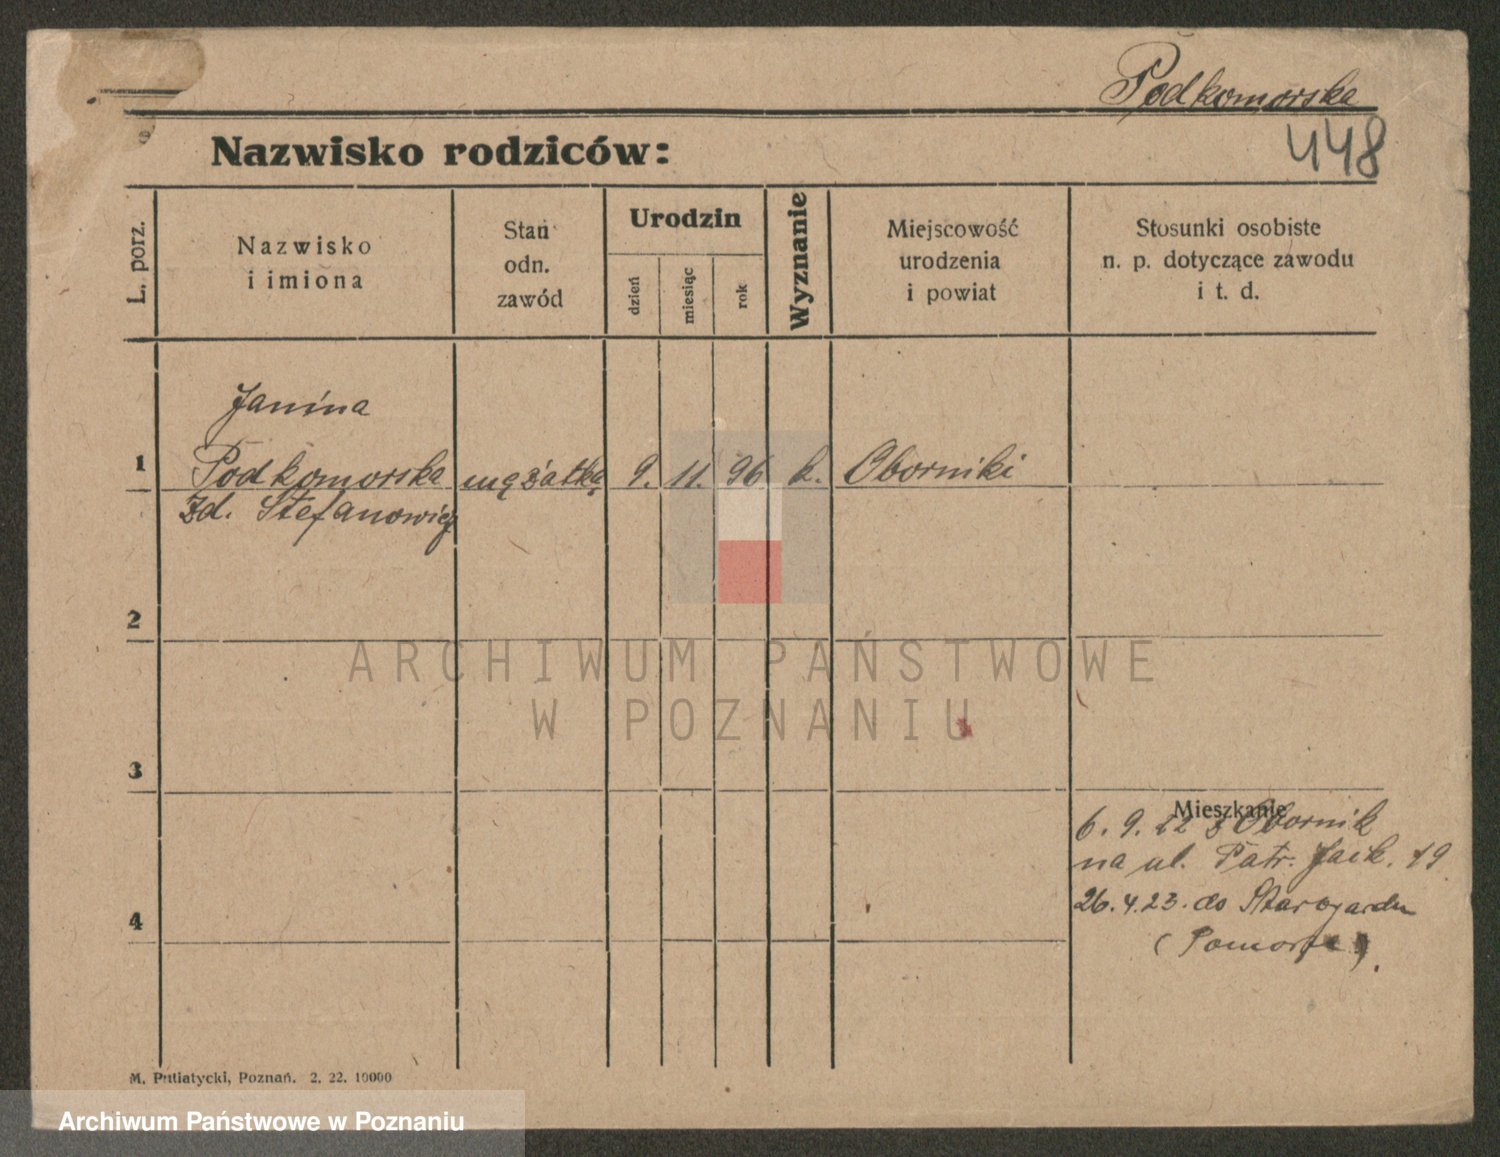 Podkomorska
448
Nazwisko rodziców:
L. porz.
Nazwisko
i imiona
Stan
odn.
zawód
Urodzin
dzień
miesiąc
rok
Wyznanie
Miejscowość
urodzenia
i powiat
Stosunki osobiste
n. p. dotyczące zawodu
i t. d.
Janina
1 Podkomorska mężatka 9. 11. 96 k. Oborniki
zd. Stefanowicz
2
3
Mieszkanie
6. 9. 22 z Obornik
na ul. Patr. Jack. 19
26.4.23. do Starogardu
4
(Pomorze).
M. Putiatycki, Poznań. 2. 22. 10000
ARCHIWUM PAŃSTWOWE
W POZNANIU
Archiwum Państwowe w Poznaniu